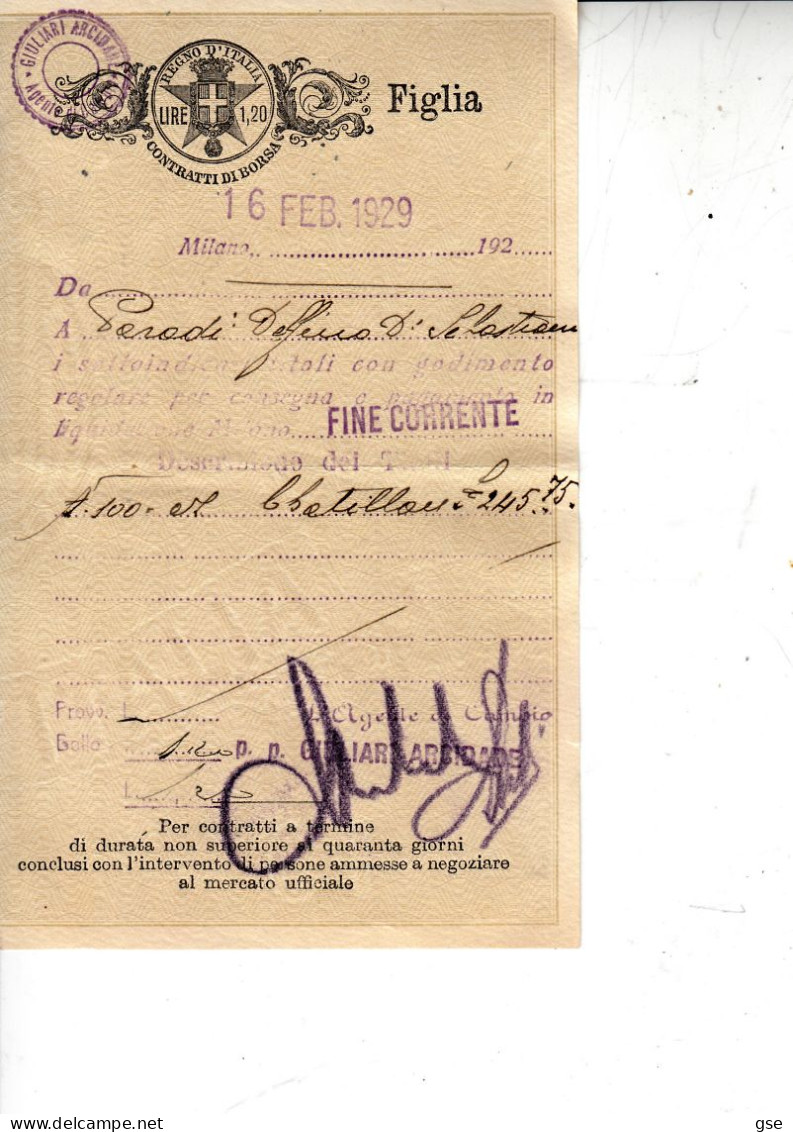 GIULIARI ARCIDA
Agente
REGNO D'ITALIA
LIRE 1,20
CONTRATTI DI BORSA
Figlia
16 FEB. 1929
Milano, 192
Da
A Parodi Delfino
i sottoindicati titoli con godimento
regolare per consegna e pagamento in
FINE CORRENTE
Descrizione dei Titoli
N. 100 Chatillon £ 245.75.
Provv. L.
L'Agente di Cambio
Bollo
p. p. GIULIARI ARCIDADE
L.
Per contratti a termine
di durata non superiore ai quaranta giorni
conclusi con l'intervento di persone ammesse a negoziare
al mercato ufficiale
gse